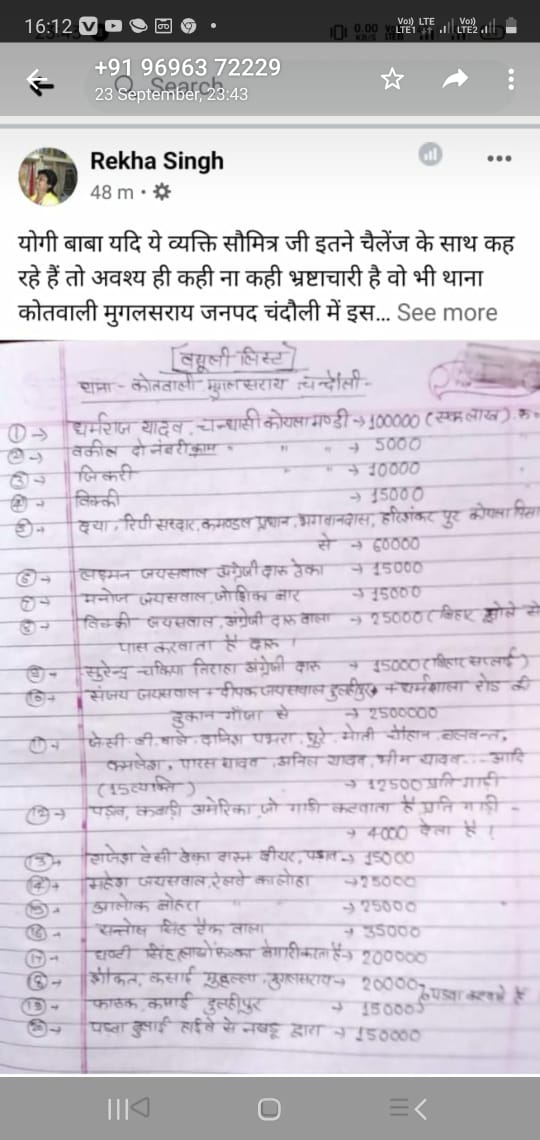 16:12
Vo)) LTE
LTE1
Vo))
LTE2
0.00
KB/S
+91 96963 72229
Search
23 September, 23:43
Rekha Singh
48 m
योगी बाबा यदि ये व्यक्ति सौमित्र जी इतने चैलेंज के साथ कह
रहे हैं तो अवश्य ही कही ना कही भ्रष्टाचारी है वो भी थाना
कोतवाली मुगलसराय जनपद चंदौली में इस... See more
वसूली लिस्ट
थाना - कोतवाली मुगलसराय चन्दौली -
① → धर्मराज यादव, चन्धासी कोयला मण्डी → 100000 (एक लाख)
② → वकील दो नंबरी काम " " " → 5000
③ → " " → 10000
④ → विक्की → 15000
⑤ →
से → 60000
⑥ → लक्ष्मन जयसवाल अंग्रेजी दारू ठेका → 15000
⑦ → मनोज जयसवाल, बार → 15000
⑧ → विक्की जयसवाल, अंग्रेजी दारू वाला → 25000 (बिहार से
पास करवाता है दारू ।
⑨ → सुरेन्द्र चकिया तिराहा अंग्रेजी दारू → 15000 (बिहार सप्लाई)
⑩ → संजय जयसवाल + दीपक जयसवाल दुलहीपुर + धर्मशाला रोड की
दुकान गाँजा से → 2500000
⑪ → जे.सी.बी. वाले, मोती चौहान, बलवन्त,
कमलेश, पारस यादव, अनिल यादव, भीम यादव ... आदि
(15 व्यक्ति) → 12500 प्रति गाड़ी
⑫ → कबाड़ी अमेरिका, जो गाड़ी कटवाता है प्रति गाड़ी -
→ 4000 देता है ।
⑬ → राजेश देसी ठेका बीयर, → 15000
⑭ → महेश जयसवाल, रेलवे का लोहा → 25000
⑮ → आलोक बोहरा " " → 25000
⑯ → सन्तोष सिंह वाला → 35000
⑰ → सिंह, → 200000
⑱ → कसाई मुहल्ला, मुगलसराय → 20000
⑲ → कसाई दुलहीपुर → 15000
⑳ → हाईवे से द्वारा → 150000